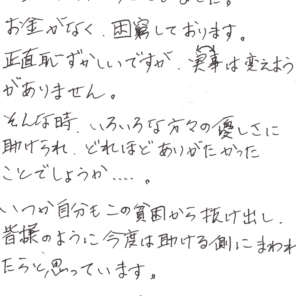 お金がなく、困窮しております。
正直恥ずかしいですが、事実は変えよう
がありません。
そんな時、いろいろな方々の優しさに
助けられ、どれほどありがたかった
ことでしょうか‥‥。
いつか自分もこの貧困から抜け出し、
皆様のように今度は助ける側にまわれ
たらと思っています。